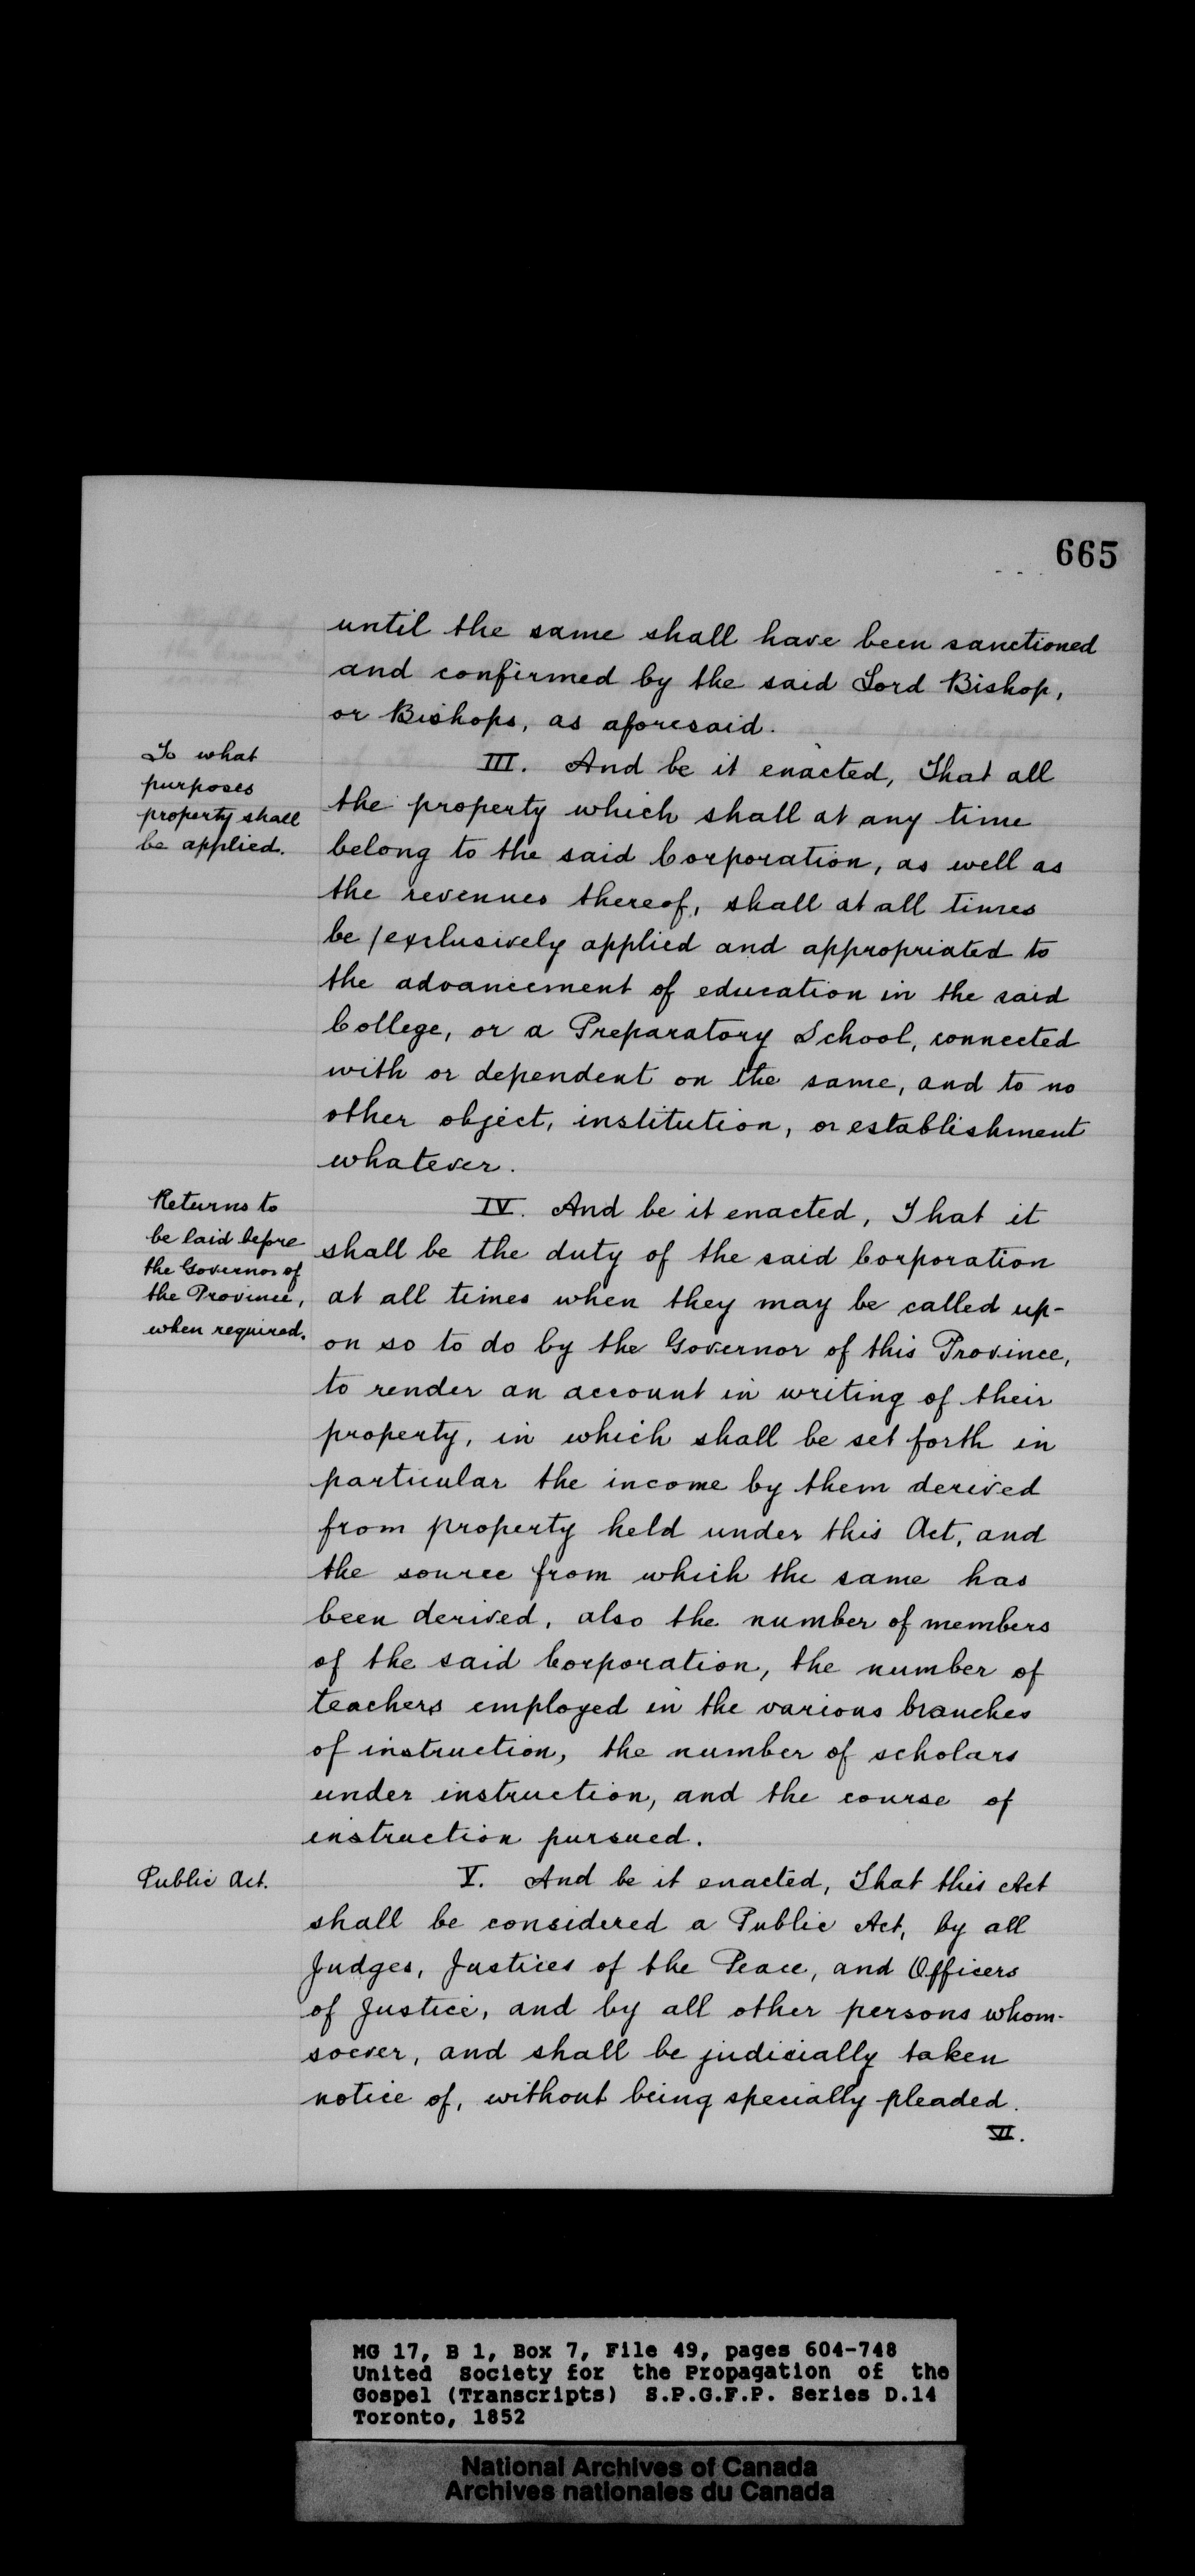 665
until the same shall have been sanctioned
and confirmed by the said Lord Bishop,
or Bishops, as aforesaid.
To what
purposes
property shall
be applied.
III. And be it enacted, That all
the property which shall at any time
belong to the said Corporation, as well as
the revenues thereof, shall at all times
be / exclusively applied and appropriated to
the advancement of education in the said
College, or a Preparatory School, connected
with or dependent on the same, and to no
other object, institution, or establishment
whatever.
Returns to
be laid before
the Governor of
the Province,
when required.
IV. And be it enacted, That it
shall be the duty of the said Corporation
at all times when they may be called up-
on so to do by the Governor of this Province,
to render an account in writing of their
property, in which shall be set forth in
particular the income by them derived
from property held under this Act, and
the source from which the same has
been derived, also the number of members
of the said Corporation, the number of
teachers employed in the various branches
of instruction, the number of scholars
under instruction, and the course of
instruction pursued.
Public Act.
V. And be it enacted, That this Act
shall be considered a Public Act, by all
Judges, Justices of the Peace, and Officers
of Justice, and by all other persons whom-
soever, and shall be judicially taken
notice of, without being specially pleaded.
VI.
MG 17, B 1, Box 7, File 49, pages 604-748
United Society for the Propagation of the
Gospel (Transcripts) S.P.G.F.P. Series D.14
Toronto, 1852
National Archives of Canada
Archives nationales du Canada